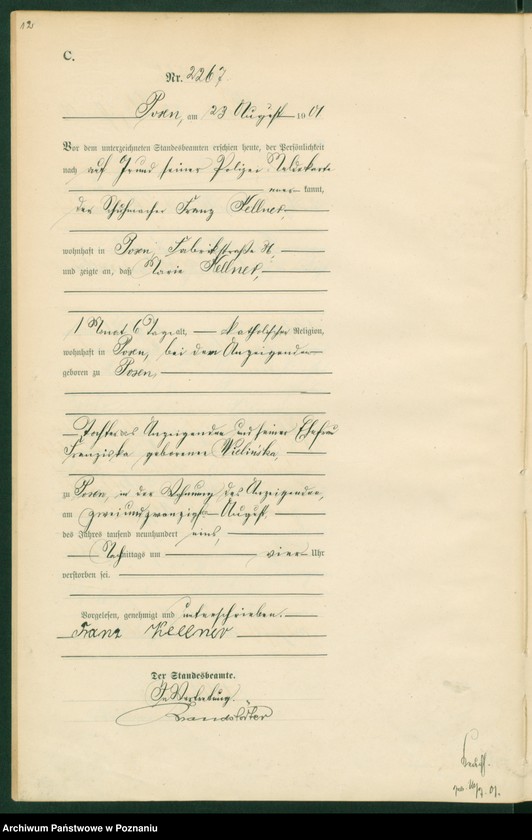 12
C.
Nr. 2267
Posen, am 23 August 1901
Vor dem unterzeichneten Standesbeamten erschien heute, der Persönlichkeit
nach auf Grund seiner Polizei Meldekarte
kannt,
der Schuhmacher Franz Kellner,
wohnhaft in Posen, Fabrikstraße
und zeigte an, daß Marie Kellner,
1 Monat 6 Tage alt, katholischer Religion,
wohnhaft in Posen, bei dem Anzeigenden
geboren zu Posen,
Tochter des Anzeigenden und seiner Ehefrau
Franziska geborenen
zu Posen, in der Wohnung des Anzeigenden,
am zweiundzwanzigsten August
des Jahres tausend neunhundert eins,
Nachmittags um vier Uhr
verstorben sei.
Vorgelesen, genehmigt und unterschrieben.
Franz Kellner
Der Standesbeamte.
In Vertretung.
Archiwum Państwowe w Poznaniu